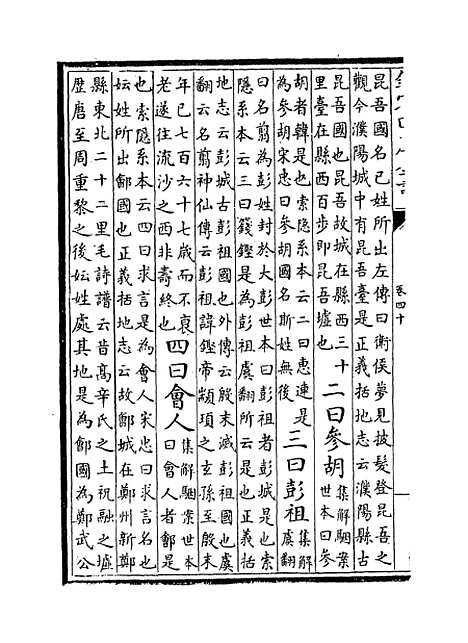 卷四十
昆吾國名己姓所出左傳曰衛侯夢見披髮登昆吾之
觀今濮陽城中有昆吾臺是正義括地志云濮陽縣古
昆吾國也昆吾故城在縣西三十
里臺在縣西百步即昆吾墟也
二曰參胡
集解駰案
世本曰參
胡者韓是也索隱系本云二曰惠連是
為參胡宋忠曰參胡國名斯姓無後
三曰彭祖
集解
虞翻
曰名翦為彭姓封於大彭世本曰彭祖者彭城是也索
隱系本云三曰籛鏗是為彭祖虞翻所云是也正義括
地志云彭城古彭祖國也外傳云殷末滅彭祖國也虞
翻云名翦神仙傳云彭祖諱鏗帝顓頊之玄孫至殷末
年已七百六十七歲而不衰
老遂往流沙之西非壽終也
四曰會人
集解駰案世本
曰會人者鄶是
也索隱系本云四曰求言是為會人宋忠曰求言名也
妘姓所出鄶國也正義括地志云故鄶城在鄭州新鄭
縣東北二十二里毛詩譜云昔高辛氏之土祝融之墟
歷唐至周重黎之後妘姓處其地是為鄶國為鄭武公